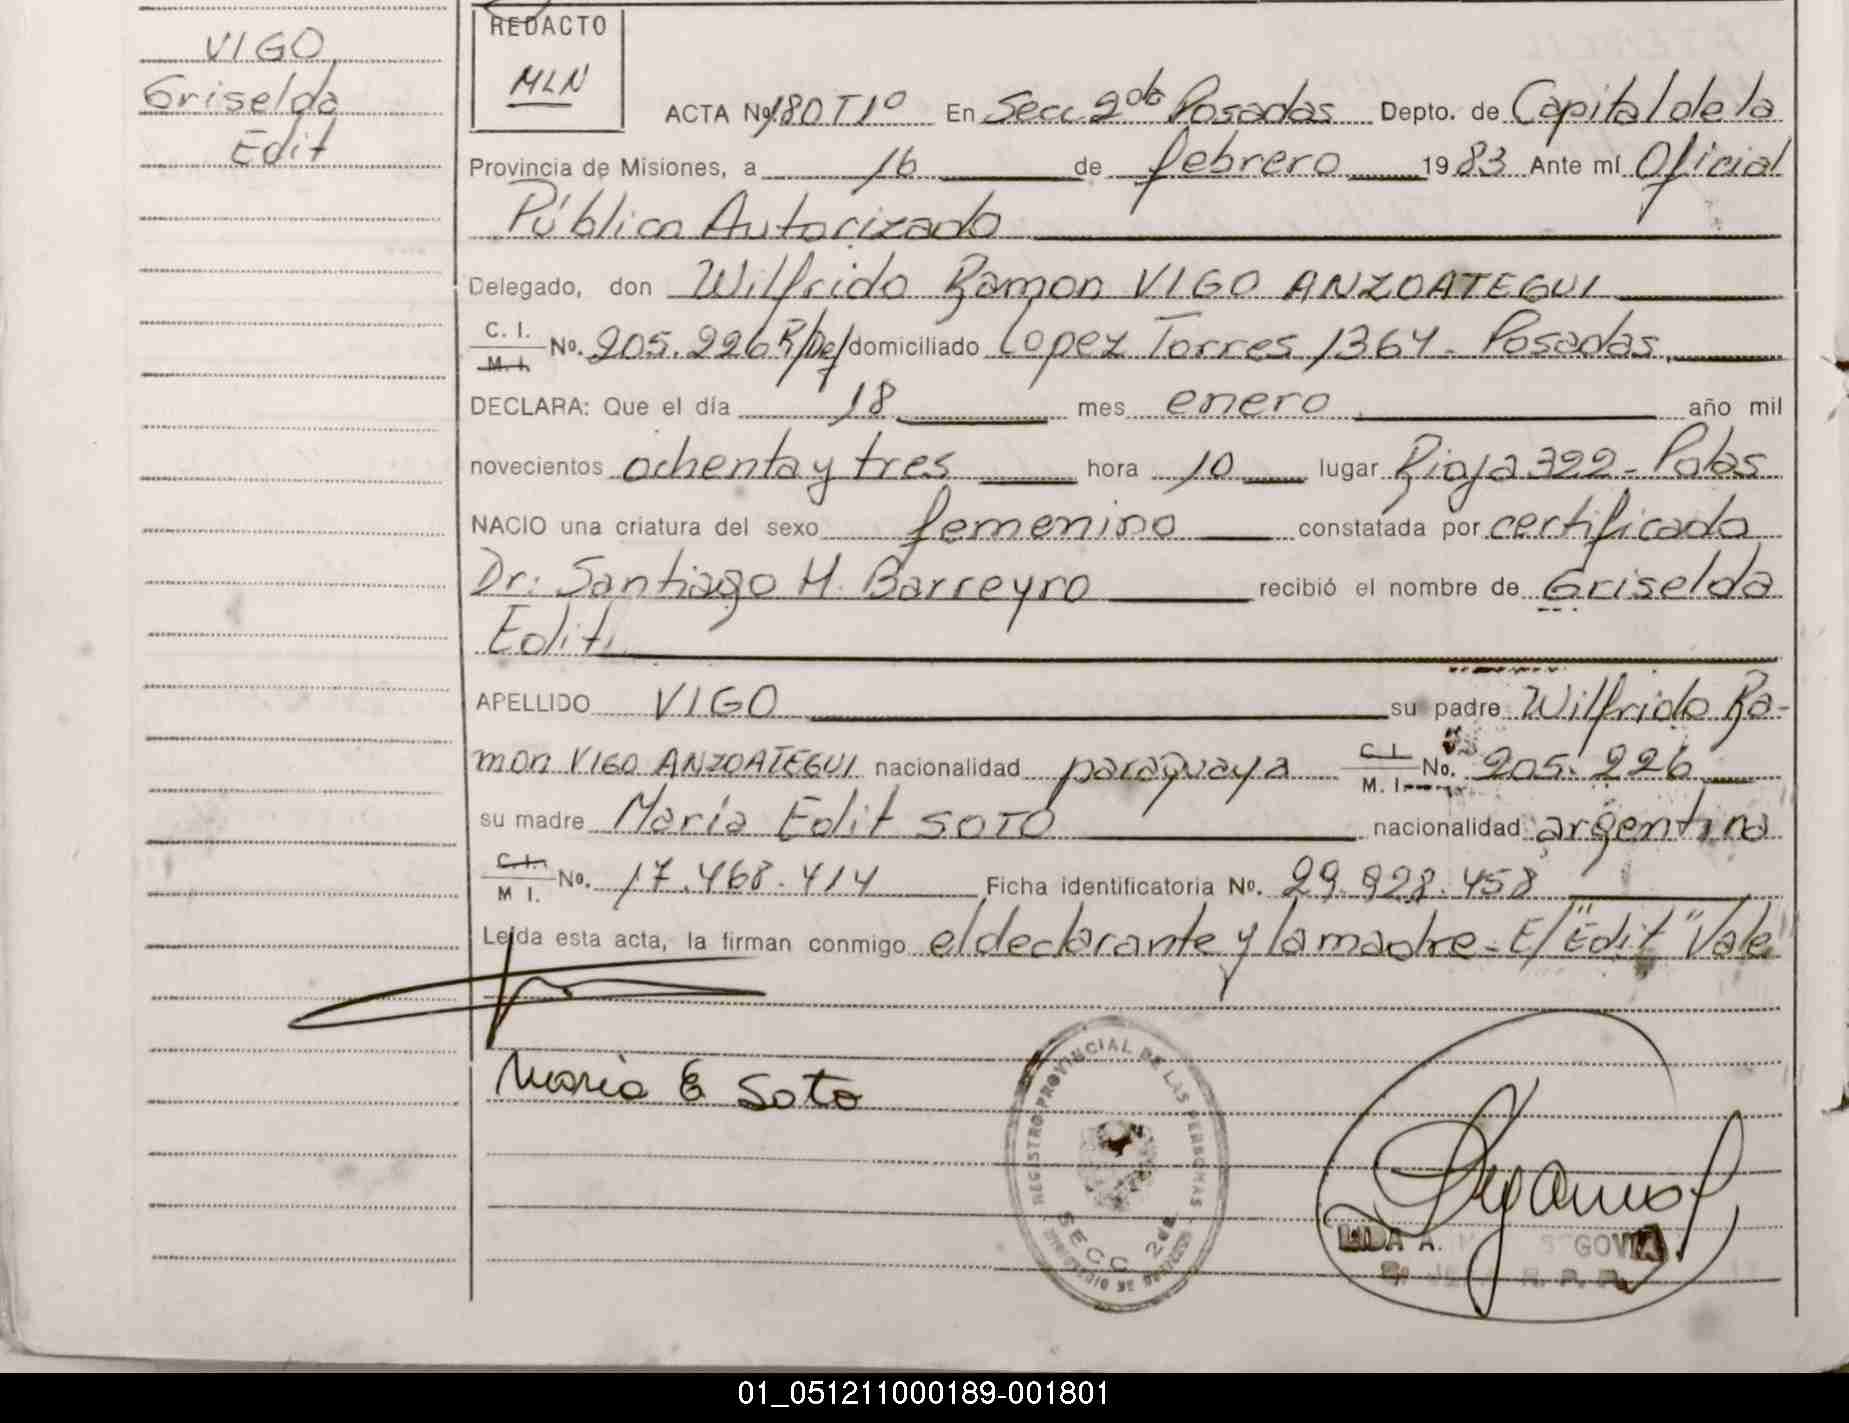 VIGO
Griselda
Edit
REDACTO
MLN
ACTA Nº 180 T 1º En Secc. 2da Posadas Depto. de Capital de la
Provincia de Misiones, a 16 de febrero 1983 Ante mí Oficial
Público Autorizado
Delegado, don Wilfrido Ramon VIGO ANZOATEGUI
C. I. M. I. No. 205.226 domiciliado Lopez Torres 1364 - Posadas
DECLARA: Que el día 18 mes enero año mil
novecientos ochenta y tres hora 10 lugar Rioja 322 - Pdas
NACIO una criatura del sexo femenino constatada por certificado
Dr. Santiago H. Barreyro recibió el nombre de Griselda
Edit
APELLIDO VIGO su padre Wilfrido Ra-
mon VIGO ANZOATEGUI nacionalidad paraguaya C. I. M. I. No. 205.226
su madre María Edit SOTO nacionalidad argentina
C. I. M I. No. 17.468.414 Ficha identificatoria No. 29.928.458
Leída esta acta, la firman conmigo el declarante y la madre - E/ "Edit" Vale
María E Soto
REGISTRO PROVINCIAL DE LAS PERSONAS
SECC 2da
LIDA A. GOVIA
R. P. P.
01_051211000189-001801